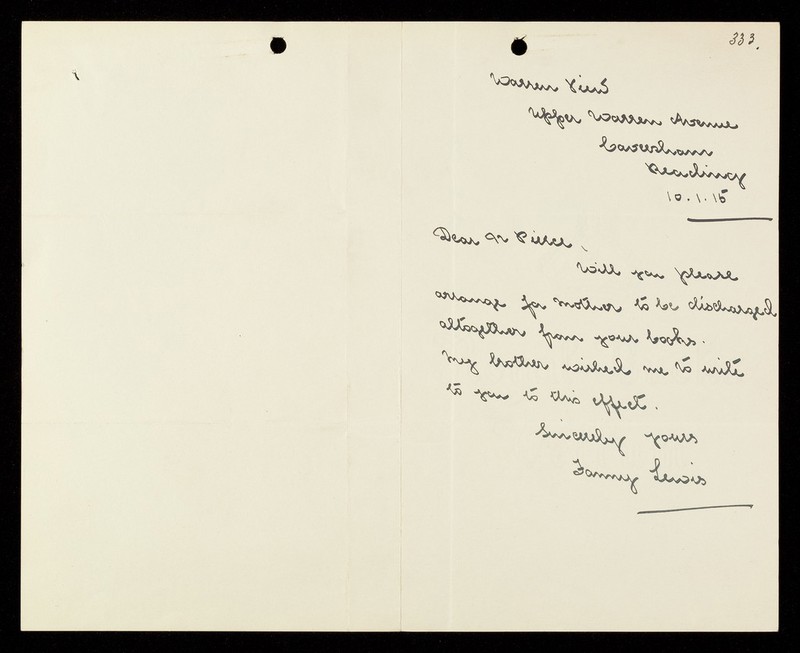 333.
Warren View
Upper Warren Avenue
Caversham
Reading
10.1.15
Dear Dr Pierce,
Will you please
arrange for mother to be discharged
altogether from your books.
My brother wished me to write
to you to this effect.
Sincerely yours
Fanny Lewis